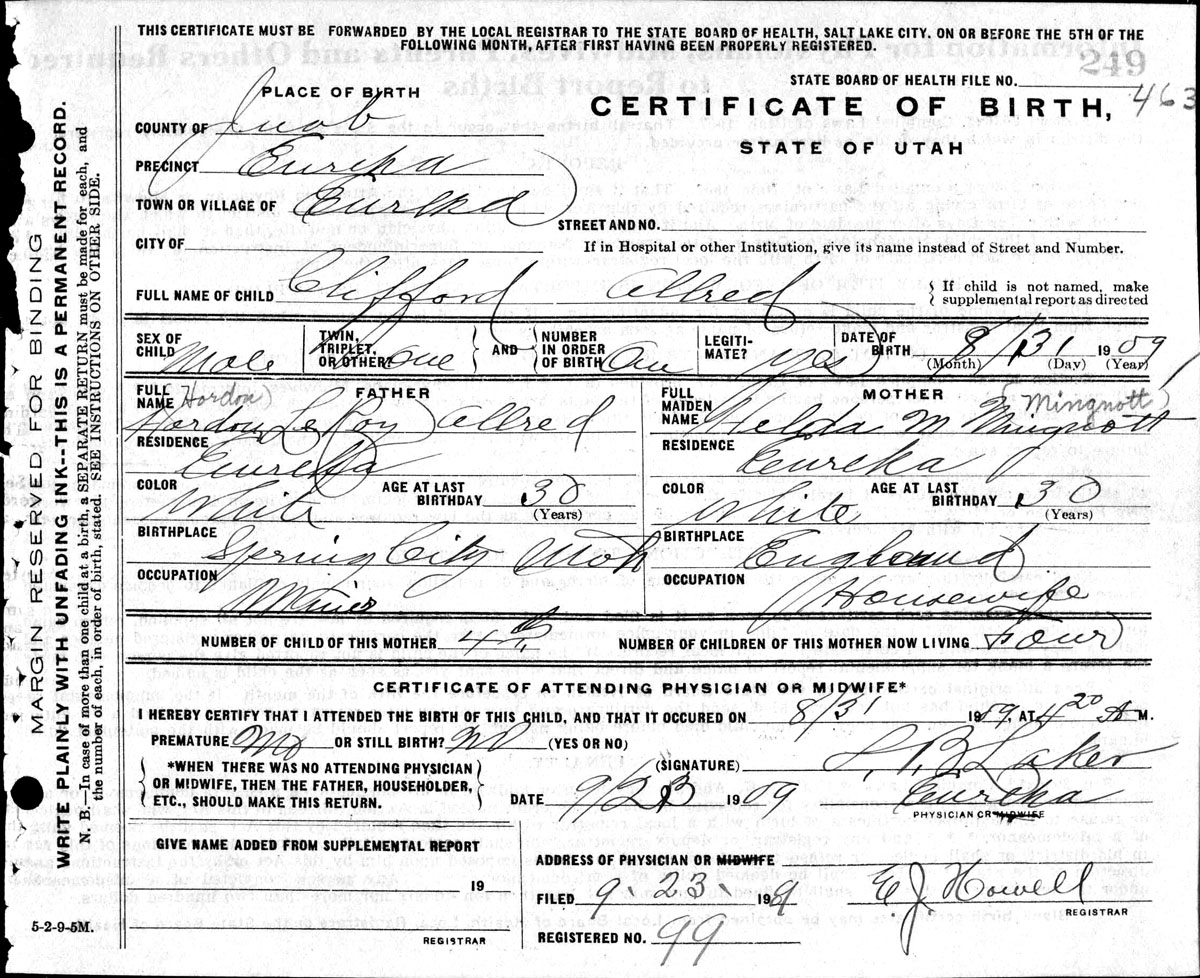 THIS CERTIFICATE MUST BE FORWARDED BY THE LOCAL REGISTRAR TO THE STATE BOARD OF HEALTH, SALT LAKE CITY. ON OR BEFORE THE 5TH OF THE
FOLLOWING MONTH, AFTER FIRST HAVING BEEN PROPERLY REGISTERED.
249
STATE BOARD OF HEALTH FILE NO.
463
PLACE OF BIRTH
CERTIFICATE OF BIRTH,
STATE OF UTAH
COUNTY OF Juab
PRECINCT Eureka
TOWN OR VILLAGE OF Eureka
STREET AND NO.
CITY OF
If in Hospital or other Institution, give its name instead of Street and Number.
FULL NAME OF CHILD Clifford Allred
{ If child is not named, make
supplemental report as directed
SEX OF CHILD Male
TWIN, TRIPLET, OR OTHER? one
AND
NUMBER IN ORDER OF BIRTH One
LEGITI-MATE? Yes
DATE OF BIRTH 8/31 1909
(Month) (Day) (Year)
FATHER
FULL NAME (Hordon) LeRoy Allred
RESIDENCE Eureka
COLOR White
AGE AT LAST BIRTHDAY 30
(Years)
BIRTHPLACE Spring City Utah
OCCUPATION Miner
MOTHER
FULL MAIDEN NAME M Mingnott Mingnott
RESIDENCE Eureka
COLOR White
AGE AT LAST BIRTHDAY 30
(Years)
BIRTHPLACE England
OCCUPATION Housewife
NUMBER OF CHILD OF THIS MOTHER 4th
NUMBER OF CHILDREN OF THIS MOTHER NOW LIVING Four
CERTIFICATE OF ATTENDING PHYSICIAN OR MIDWIFE*
I HEREBY CERTIFY THAT I ATTENDED THE BIRTH OF THIS CHILD, AND THAT IT OCCURED ON 8/31 1909, AT 4 20 A M.
PREMATURE No OR STILL BIRTH? No (YES OR NO)
*WHEN THERE WAS NO ATTENDING PHYSICIAN
OR MIDWIFE, THEN THE FATHER, HOUSEHOLDER,
ETC., SHOULD MAKE THIS RETURN.
(SIGNATURE) Laker
DATE 9/23 1909
Eureka
PHYSICIAN OR MIDWIFE
GIVE NAME ADDED FROM SUPPLEMENTAL REPORT
19
REGISTRAR
ADDRESS OF PHYSICIAN OR MIDWIFE
FILED 9 23 1909
E J Howell
REGISTRAR
REGISTERED NO. 99
5-2-9-5M.
MARGIN RESERVED FOR BINDING
WRITE PLAINLY WITH UNFADING INK--THIS IS A PERMANENT RECORD.
N. B.—In case of more than one child at a birth, a SEPARATE RETURN must be made for each, and
the number of each, in order of birth, stated. SEE INSTRUCTIONS ON OTHER SIDE.